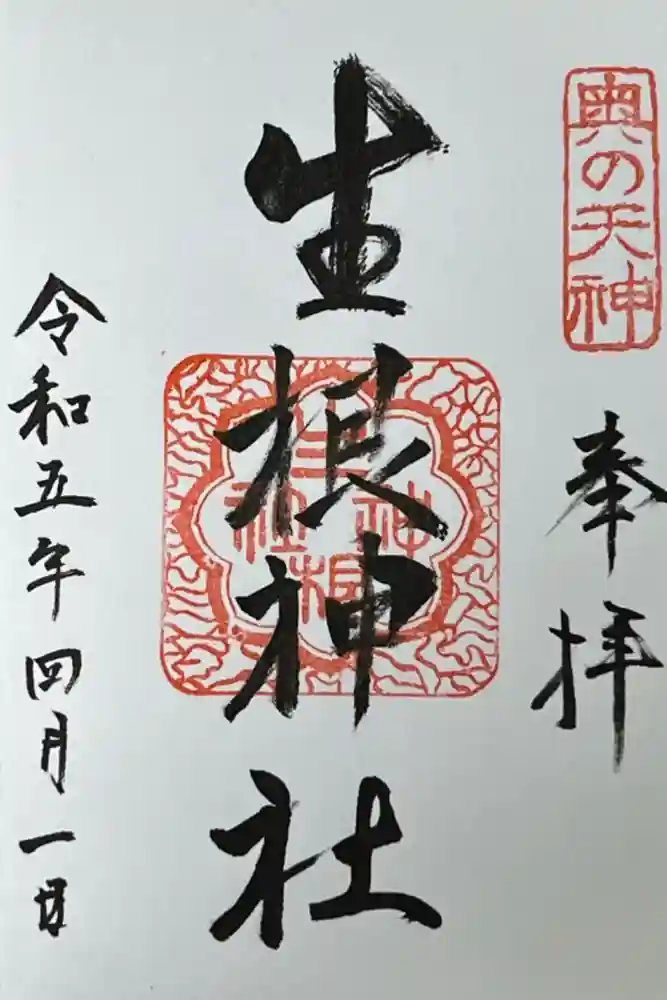 奥の天神
奉拝
生根神社
生根神社
令和五年四月一日